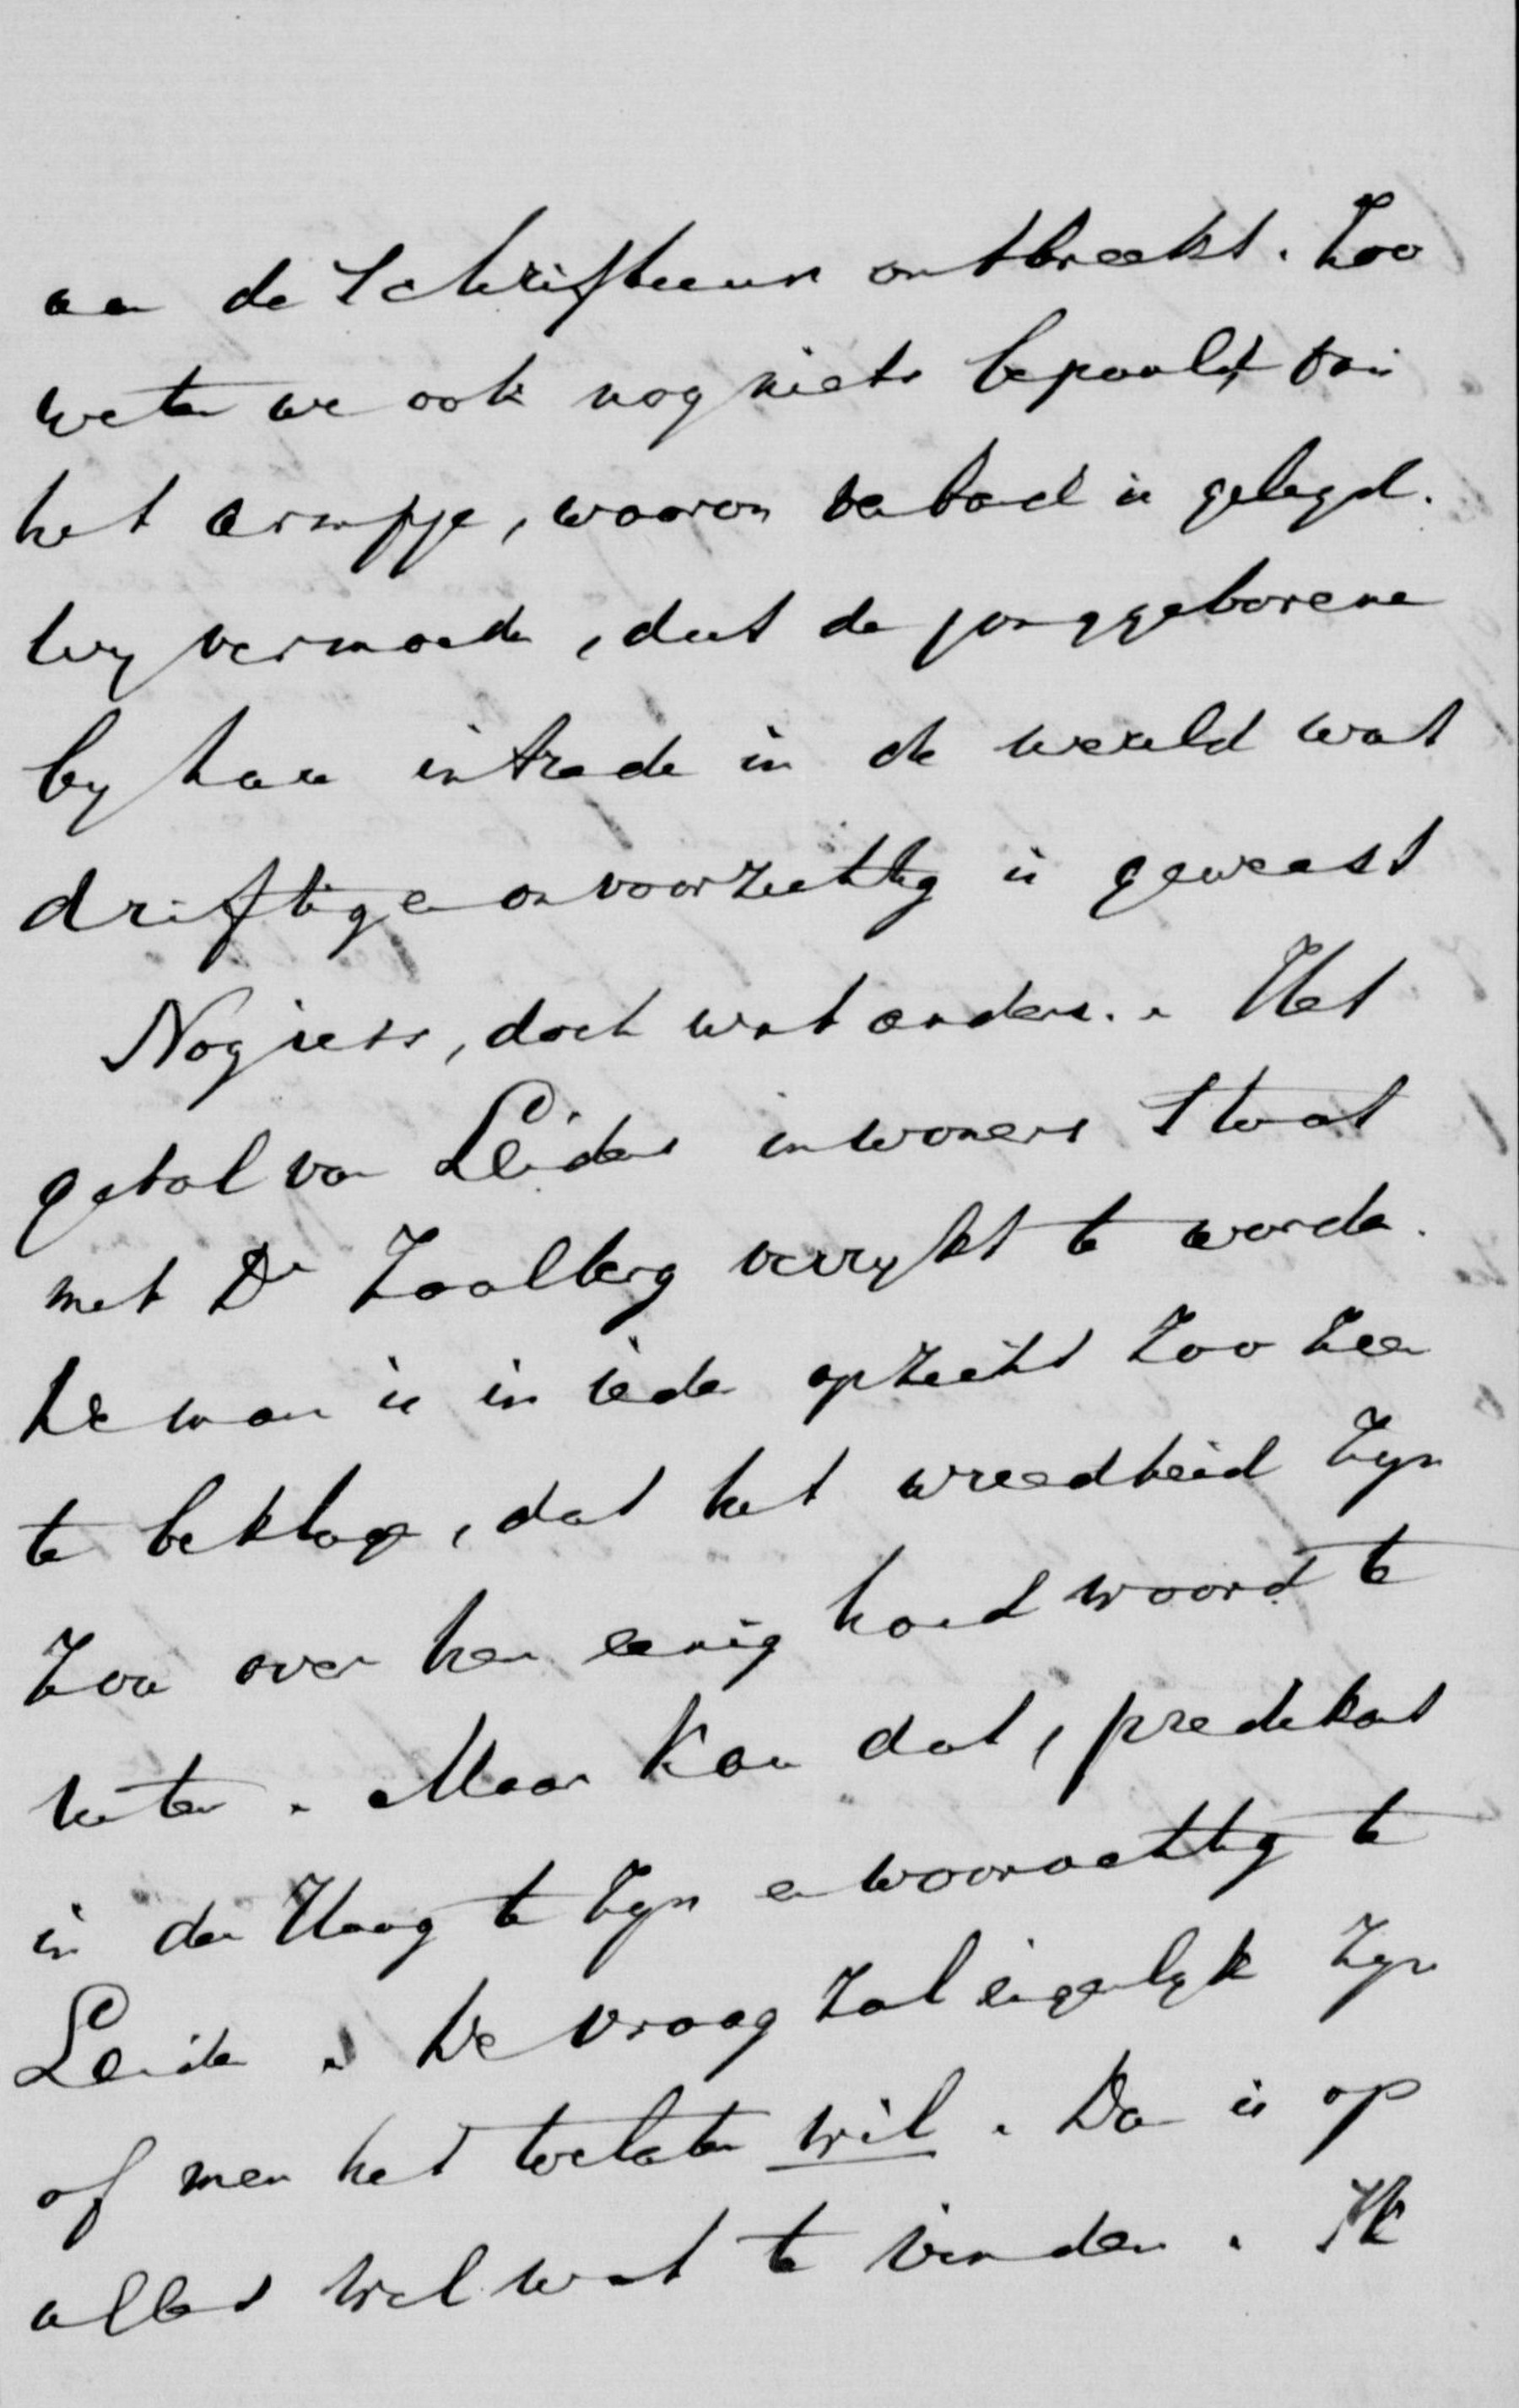 aan de Schriftuur ontbreekt. Zoo
weten we ook nog niets bepaald van
het armpje, waaron verband is gelegd.
Wy vermoeden, dat de jonggeborene
by haar intrede in de wereld wat
driftig en onvoorzichtig is geweest
Nog iets, doch wat anders. Het
getal van Leidens inwoners staat
met Dr Zaalberg verrykt te worden.
De man is in ieder opzicht zoo zeer
te beklagen, dat het wreedheid zyn
zou over hem eenig hard woord te
uiten. Maar kan dat, predikant
in den Haag te zyn en woonachtig te
Leiden. De vraag zal eigenlyk zyn
of men het toelaten wil. Dan is op
alles wel wat te vinden. Ik